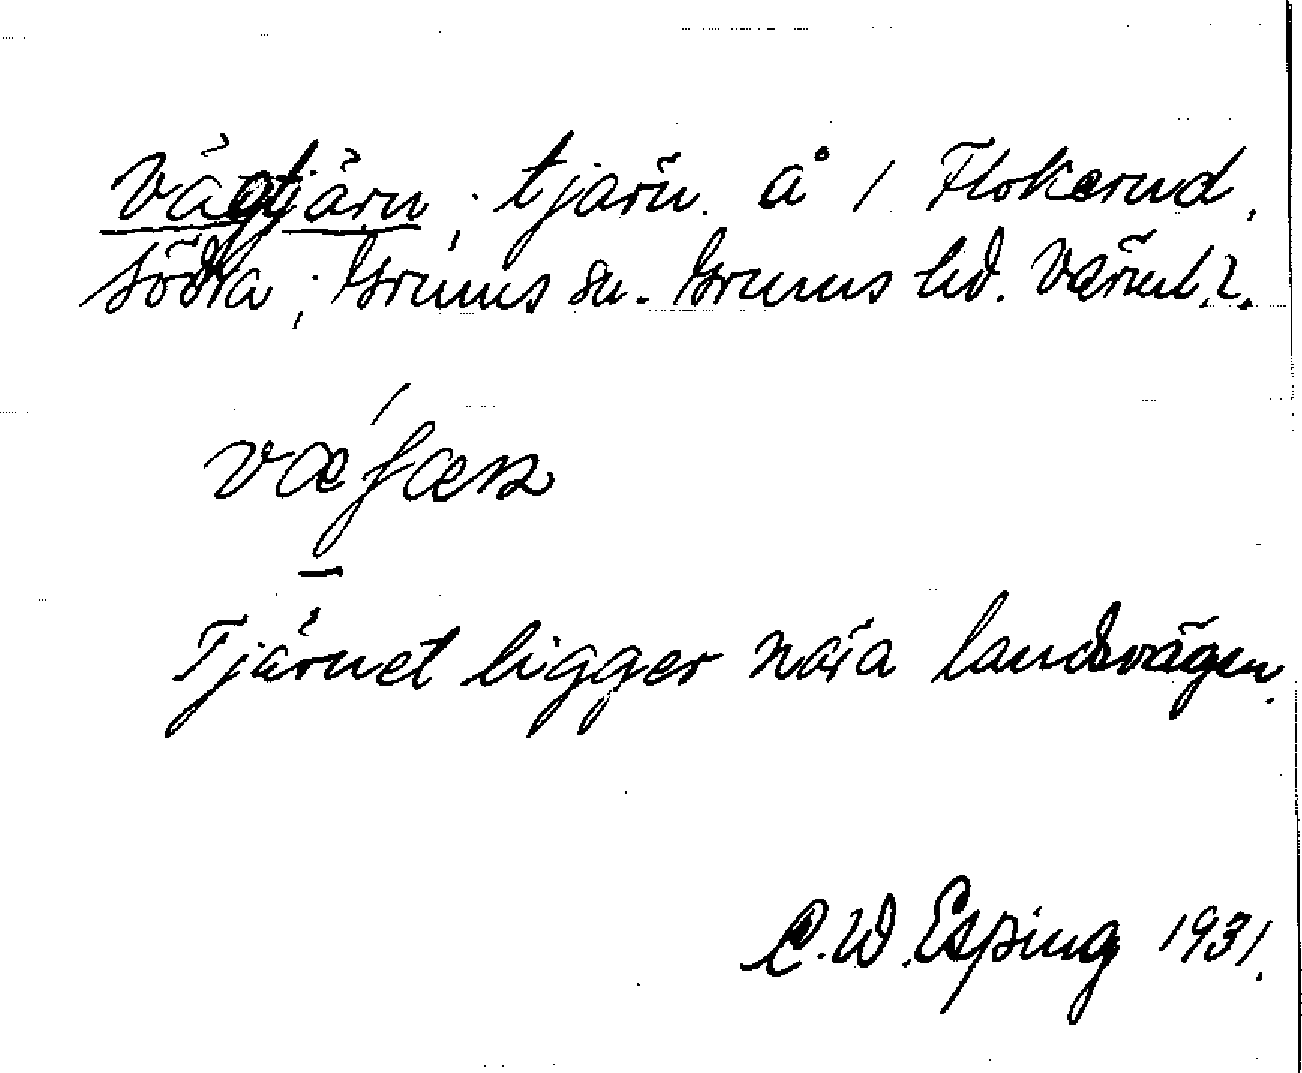 Vägtjärn; tjärn å 1 Flokerud,
Södra; Grums sn. Grums hd. Värml.
væ´ʃæɳ
Tjärnet ligger nära landsvägen.
C.W. Esping 1931.